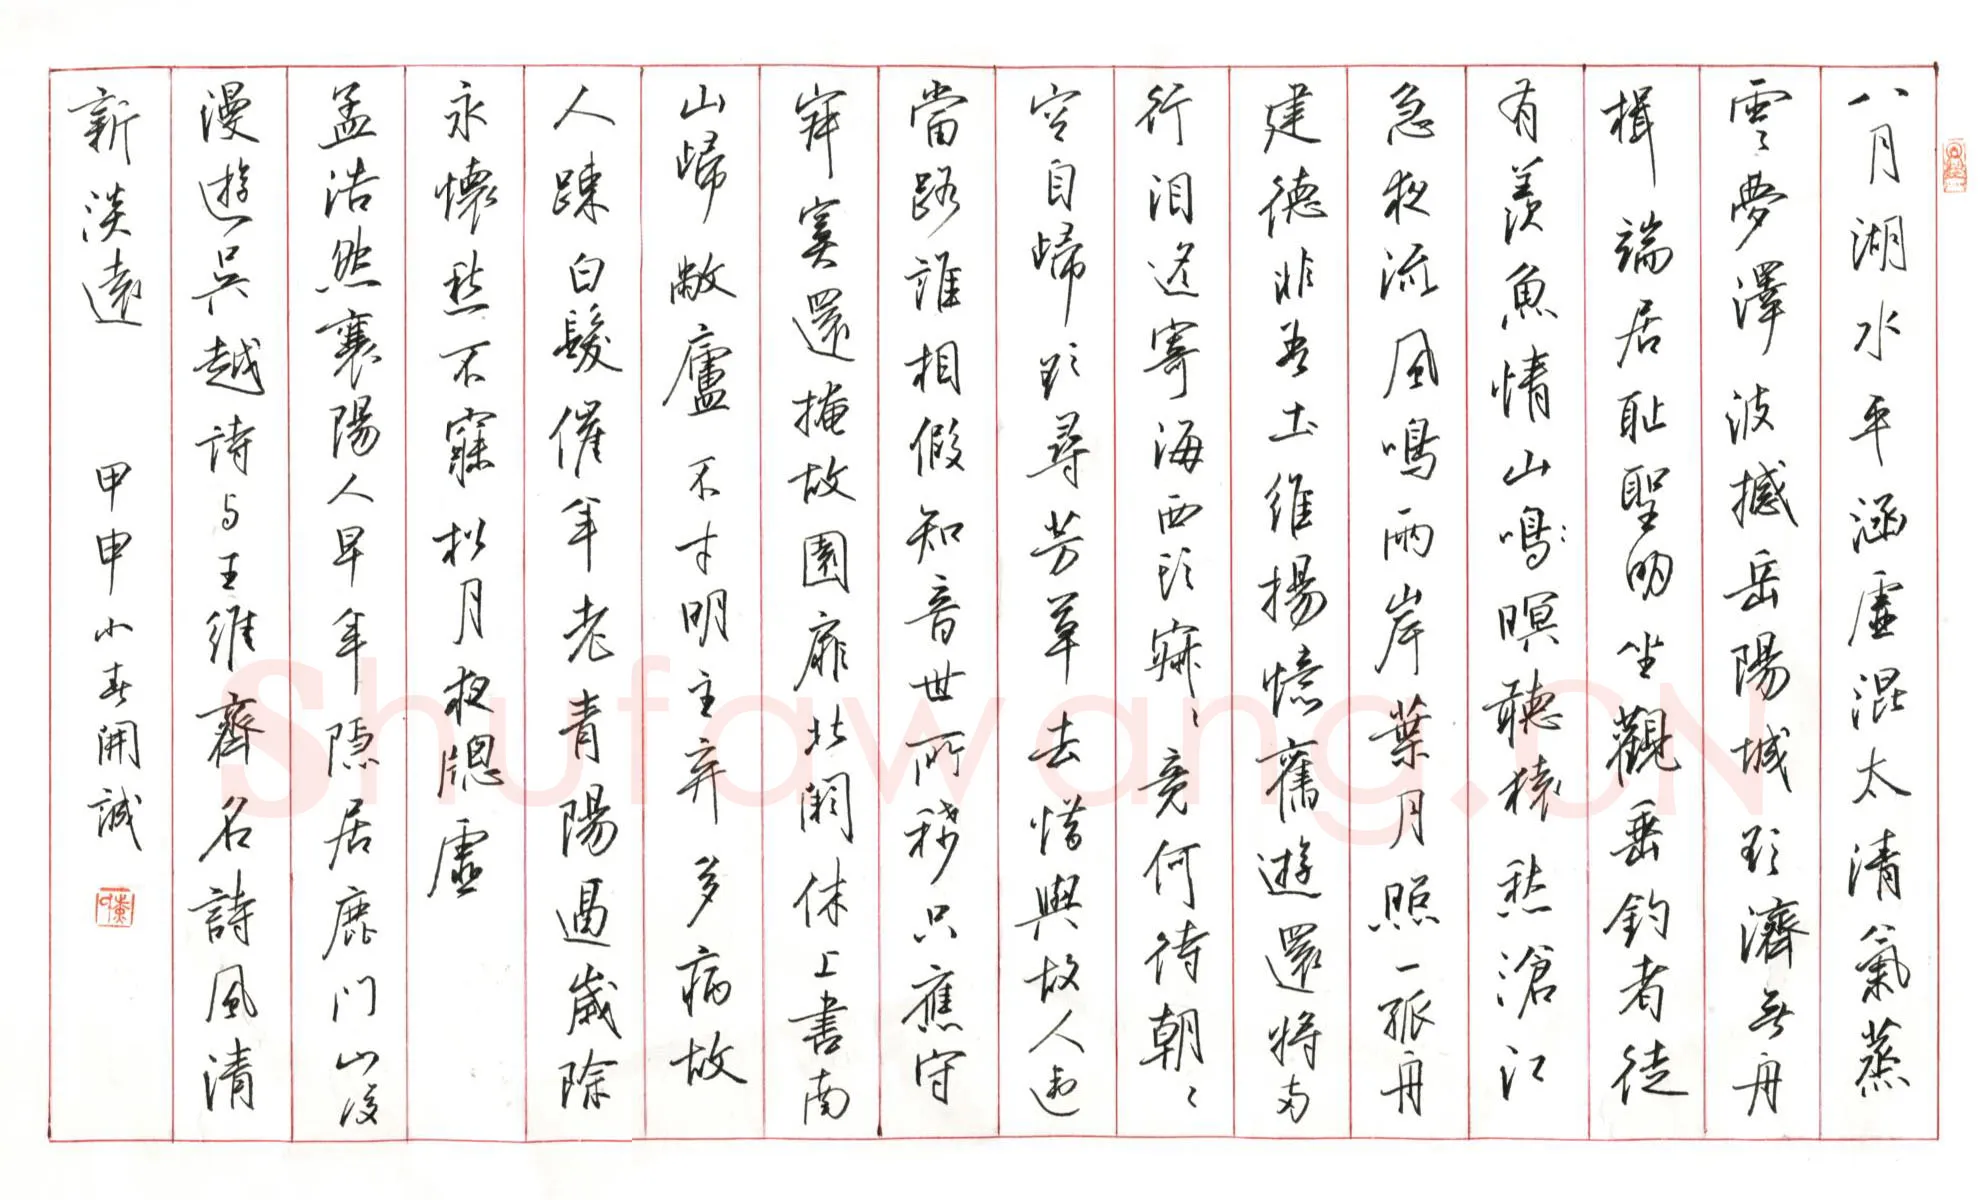 八月湖水平涵虛混太清氣蒸
雲夢澤波撼岳陽城欲濟無舟
楫端居恥聖明坐觀垂釣者徒
有羨魚情山鳴:暝聽猿愁滄江
急夜流風鳴兩岸葉月照一孤舟
建德非吾土維揚憶舊遊還將兩
行泪遥寄海西頭寂〻竟何待朝〻
空自歸欲尋芳草去惜與故人違
當路誰相假知音世所稀只應守
寂寞還掩故園扉北闕休上書南
山歸敝廬不才明主弃多病故
人踈白髮催年老青陽逼歲除
永懷愁不寐松月夜牕虛
孟浩然襄陽人早年隱居鹿门山後
漫遊吳越詩与王維齊名詩風清
新淡遠 甲申小春開誠
Shufawang.CN